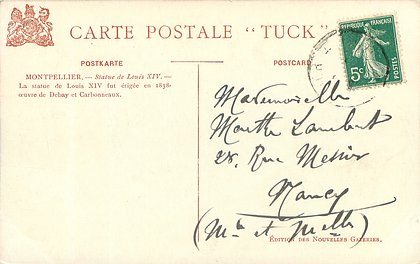 CARTE POSTALE "TUCK"
POSTKARTE
POSTCARD
MONTPELLIER. — Statue de Louis XIV. —
La statue de Louis XIV fut érigée en 1838-
œuvre de Debay et Carbonneaux.
RÉPUBLIQUE FRANÇAISE
5c
Mademoiselle
Marthe Lambert
28, Rue
Nancy
(Mthe et Mlle)
ÉDITION DES NOUVELLES GALERIES.